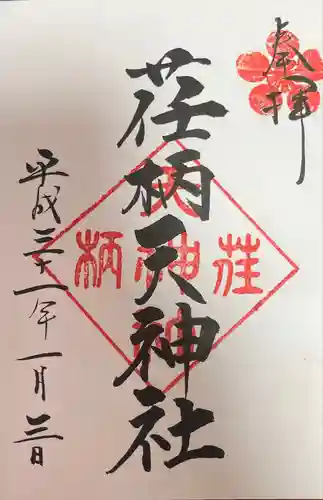 奉拝
荏柄天神社
荏 天神 柄
平成三十一年一月三日